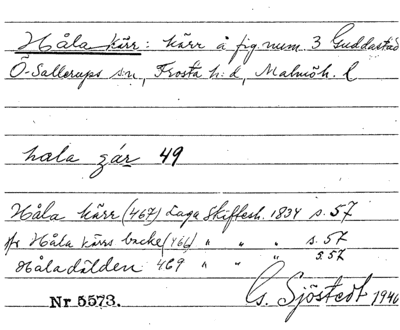 Håla kärr: kärr å fig. num. 3 Guddastad
Ö-Sallerups s:n, Frosta h:d, Malmöh. l
hala 49
Håla kärr (467) Laga Skiftesh. 1834 s. 57
Håla kärrs backe (466) " " " s. 57
Håladälden 469 " " " s. 57
Nr 5573. Cs. Sjöstedt 1940